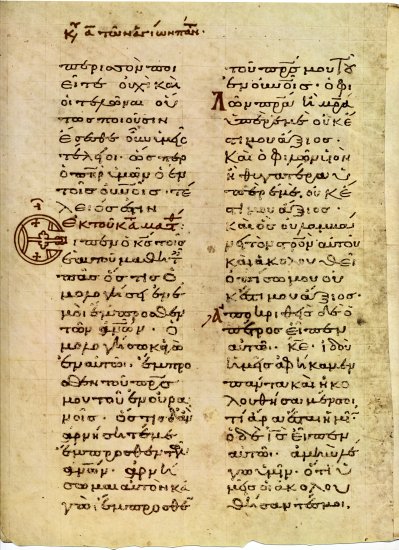 Κυ α τῶν ἁγίων πάν.
περισσὸν ποι
εῖτε οὐχὶ καὶ
οἱ τελῶναι οὕ
τως ποιοῦσιν
ἔσεσθε οὖν ὑμεῖς
τέλειοι· ὥσπερ
ὁ π̅η̅ρ̅ ὑμῶν ὁ ἐν
τοῖς ο̅υ̅ν̅ο̅ι̅ς̅· τέ
λειός ἐστιν
ἐκ τοῦ κατὰ ματθ
εἶπεν ὁ κ̅ς̅ τοῖς
ἑαυτοῦ μαθητ
πᾶς ὅστις ὁ
μολογήσει ἐν ἐ
μοὶ ἔμπροσθεν
τῶν α̅ν̅ω̅ν̅· ὁ
μολογήσω κἀγὼ
ἐν αὐτῶ· ἔμπρο
σθεν τοῦ π̅ρ̅ς̅
μου τοῦ ἐν οὐρα
νοῖς· ὅστις δ' ἂν
ἀρνήσηταί με
ἔμπροσθεν τῶν
α̅ν̅ω̅ν̅· ἀρνή
σομαι αὐτὸν κἀ
γὼ ἔμπροσθεν
τοῦ π̅ρ̅ς̅ μου τοῦ
ἐν ο̅υ̅ν̅ο̅ι̅ς̅· ὁ φι
λῶν π̅ρ̅α̅ ἢ μ̅ρ̅α̅
ὑπὲρ ἐμὲ οὐκ ἔ
στι μου ἄξιος
καὶ ὁ φιλῶν υἱὸν
ἢ θυγατέρα ὑ
πὲρ ἐμέ, οὐκ ἔ
στι μου ἄξιος·
καὶ ὃς οὐ λαμβά
νει τὸν σ̅τ̅ρ̅ο̅ν̅ αὐτοῦ
καὶ ἀκολουθεῖ
ὀπίσω μου οὐ
κ ἔστι μου ἄξιος·
ἀποκριθεὶς δὲ ὁ
πέτρος εἶπεν
αὐτῶ· κ̅ε̅ ἰδοὺ
ἡμεῖς ἀφήκαμεν
πάντα καὶ ἠκο
λουθήσαμέν σοι
τί ἄρα ἔσται ἡμῖν
ὁ δὲ ι̅ς̅ εἶπεν
αὐτῶ· ἀμὴν λέ
γω ὑμῖν· ὅτι ὑ
μεῖς οἱ ἀκολου
θήσαντές μοι·